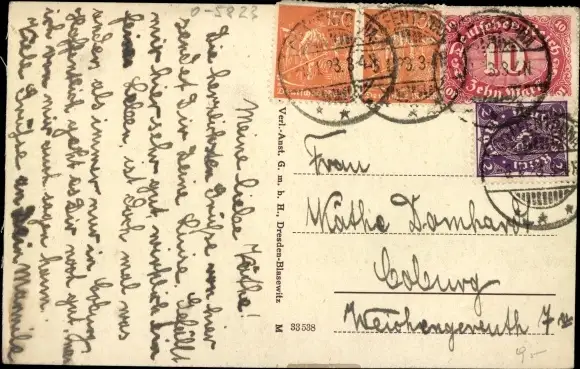 0-5823
Meine liebe Käthe!
Die herzlichsten Grüße von hier
sendet Dir Deine Luise. Gefällt
mir hier sehr gut, wirklich ein
feines Leben, ist doch mal was
anders als immer nur in Coburg
Hoffentlich geht es Dir recht gut, was
ich von mir auch sagen kann.
Viele Grüße an Dein
Verl.-Anst. G. m. b. H., Dresden-Blasewitz
M 33538
Deutsches Reich
10
Zehn Mark
Frau
Käthe Domhardt
Coburg
Weichengereuth 7